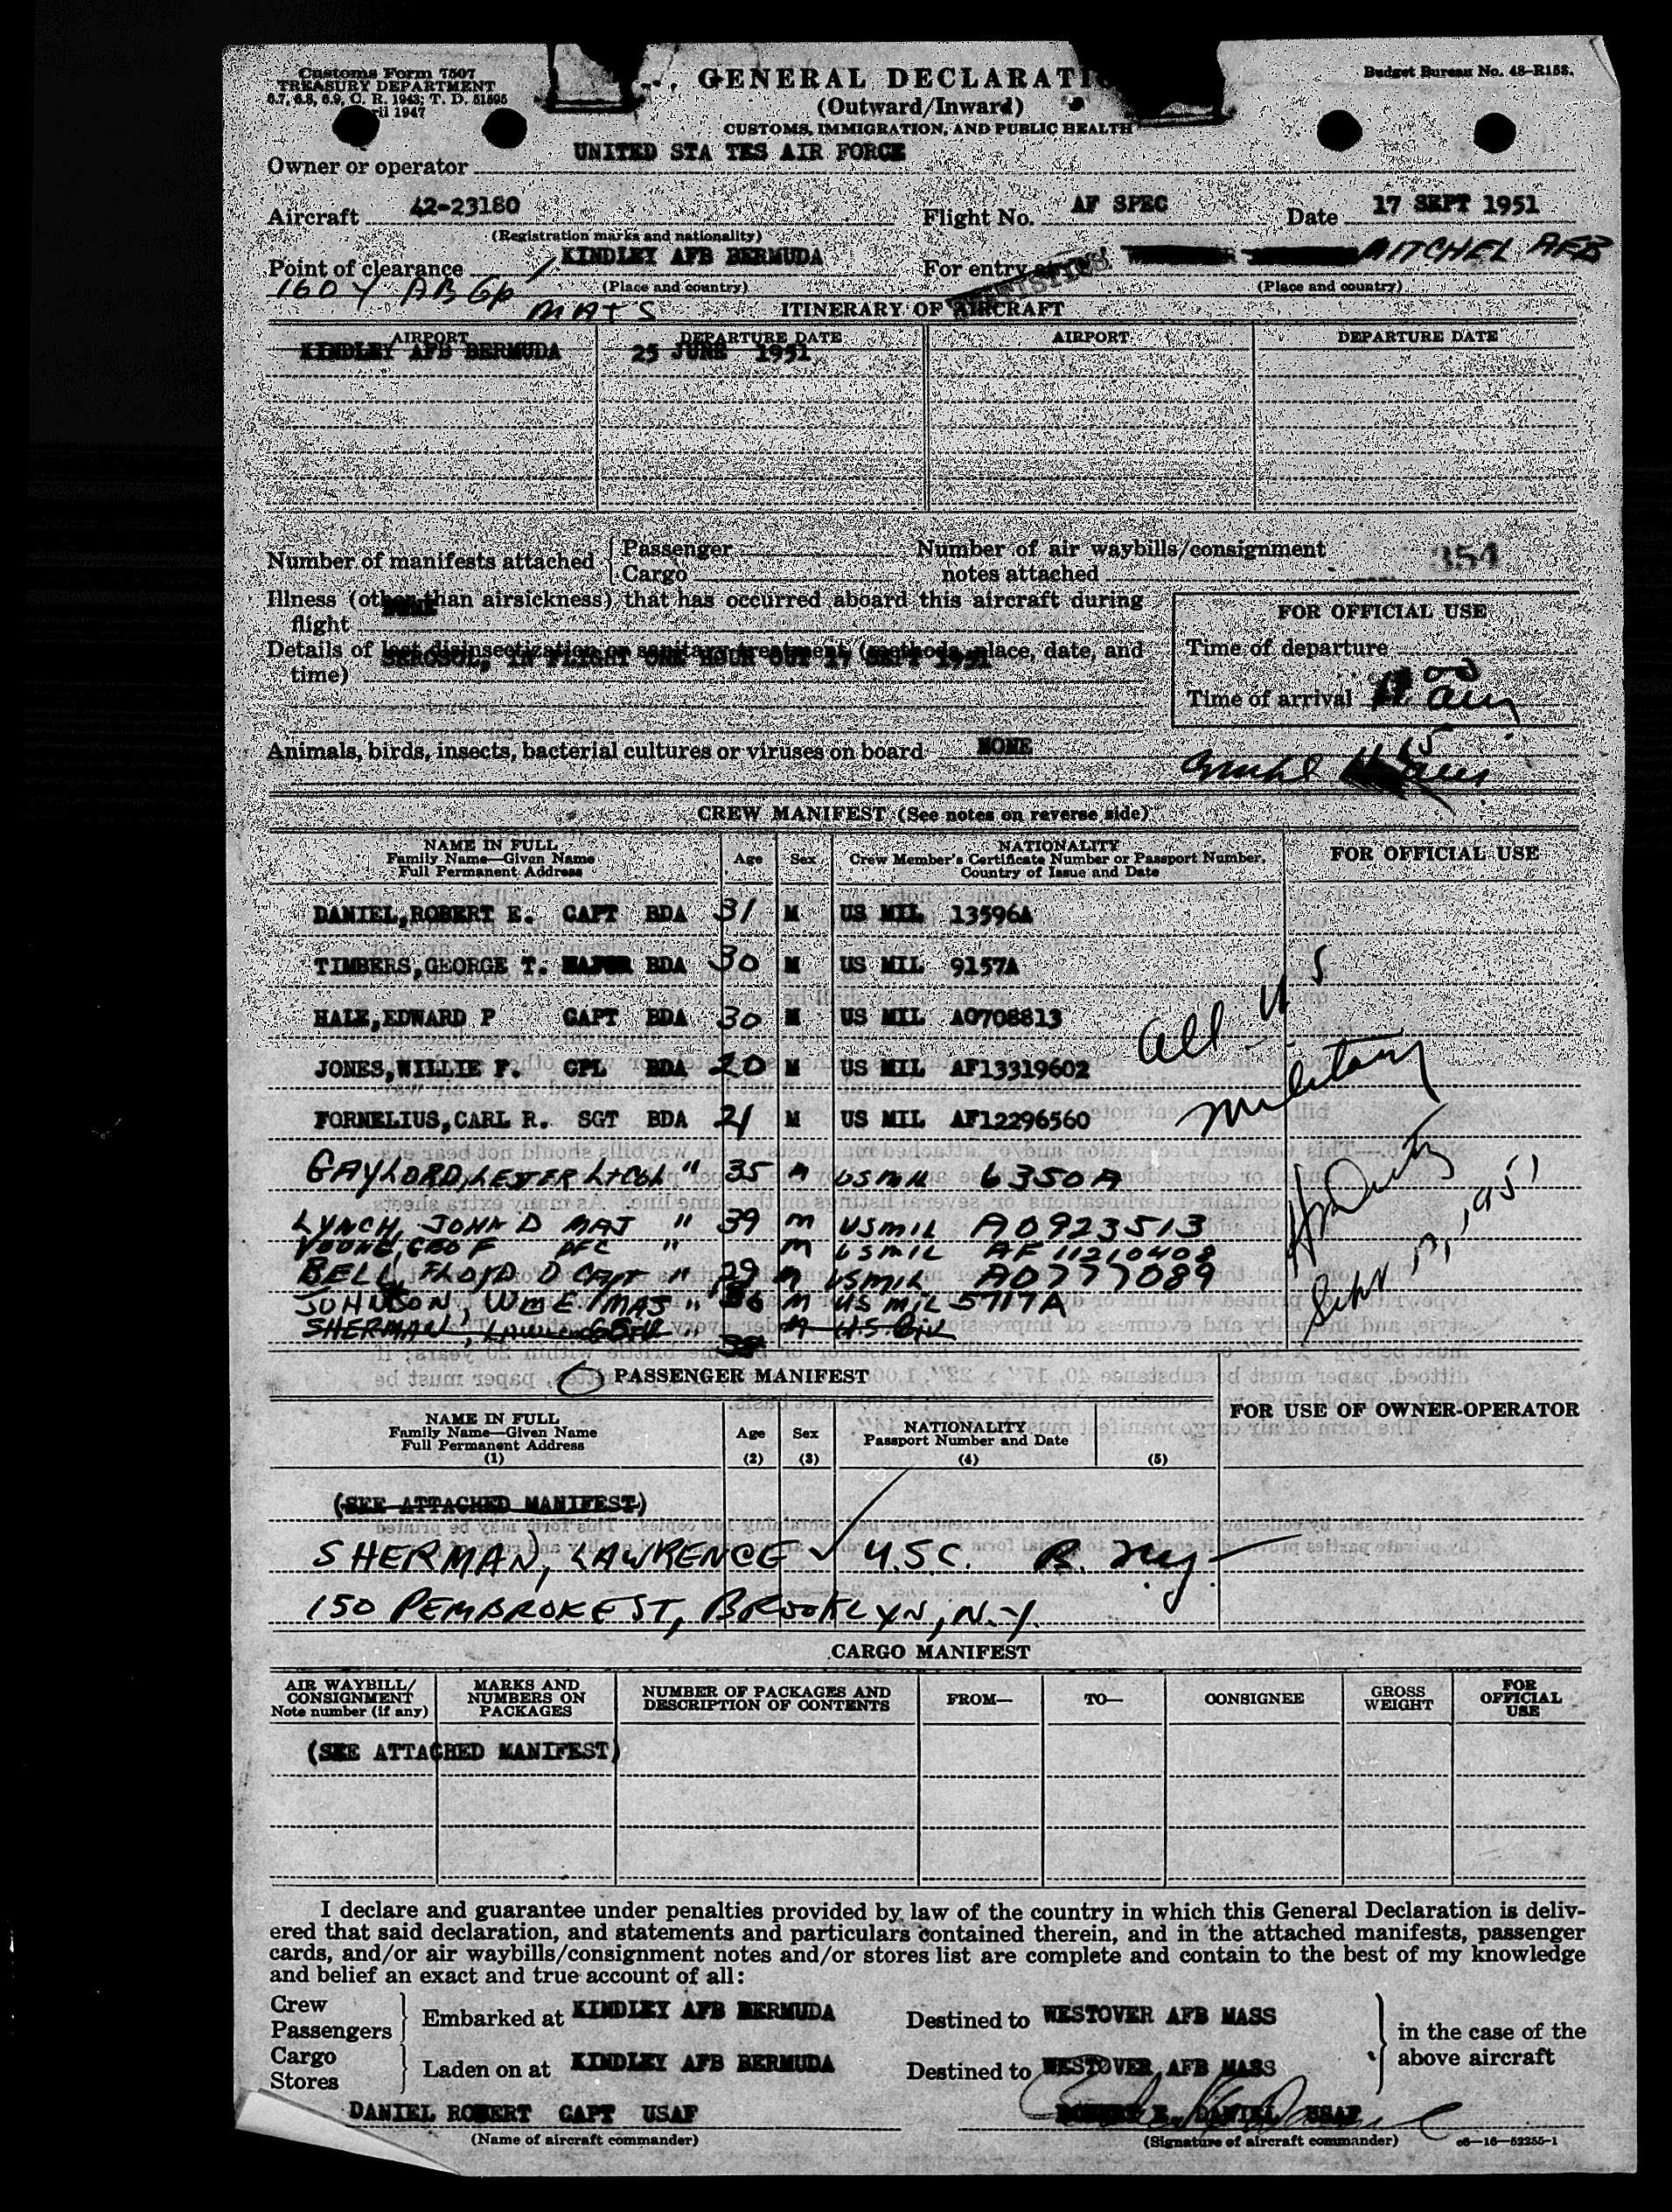 Customs Form 7507
TREASURY DEPARTMENT
6.7, 6.8, 6.9, C. R. 1943; T. D. 51595
il 1947
GENERAL DECLARATI
(Outward/Inward)
CUSTOMS, IMMIGRATION, AND PUBLIC HEALTH
Budget Bureau No. 48-R158.
Owner or operator UNITED STA TES AIR FORCE
Aircraft 42-23180 Flight No. AF SPEC Date 17 SEPT 1951
(Registration marks and nationality)
Point of clearance KINDLEY AFB BERMUDA For entry MITCHEL AFB
(Place and country) (Place and country)
1604 ABGp MATS
ITINERARY OF AIRCRAFT
AIRPORT DEPARTURE DATE AIRPORT DEPARTURE DATE
KINDLEY AFB BERMUDA 25 JUNE 1951
Number of manifests attached { Passenger
Cargo
Number of air waybills/consignment
notes attached 354
Illness (other than airsickness) that has occurred aboard this aircraft during
flight NONE
Details of last disinsectization or sanitary treatment (methods, place, date, and
time) AEROSOL, IN FLIGHT ONE HOUR OUT 17 SEPT 1951
FOR OFFICIAL USE
Time of departure
Time of arrival
Animals, birds, insects, bacterial cultures or viruses on board NONE
CREW MANIFEST (See notes on reverse side)
NAME IN FULL
Family Name—Given Name
Full Permanent Address
Age
Sex
NATIONALITY
Crew Member's Certificate Number or Passport Number,
Country of Issue and Date
FOR OFFICIAL USE
DANIEL,ROBERT E. CAPT BDA 31 M US MIL 13596A
TIMBERS,GEORGE T. MAJOR BDA 30 M US MIL 9157A
HALE,EDWARD P CAPT BDA 30 M US MIL AO708813
JONES,WILLIE F. CPL BDA 20 M US MIL AF13319602
FORNELIUS,CARL R. SGT BDA 21 M US MIL AF12296560
GAYLORD, LESTER Lt Col " 35 M US MIL 6350A
LYNCH, JOHN D MAJ " 39 M US MIL AO923513
YOUNG, GEO F PFC " M US MIL AF 11210408
BELL, FLOYD D CAPT " 29 M US MIL AO777089
JOHNSON, Wm E. MAJ " 36 M US MIL 5717A
SHERMAN, M U.S. Civ
All US
Military
Sept 17, 1951
O PASSENGER MANIFEST
NAME IN FULL
Family Name—Given Name
Full Permanent Address
(1)
Age
(2)
Sex
(3)
NATIONALITY
Passport Number and Date
(4)
(5)
FOR USE OF OWNER-OPERATOR
(SEE ATTACHED MANIFEST)
SHERMAN, LAWRENCE ✓ U.S.C. B. N.Y.
150 PEMBROKE ST, BROOKLYN, N.Y.
CARGO MANIFEST
AIR WAYBILL/
CONSIGNMENT
Note number (if any)
MARKS AND
NUMBERS ON
PACKAGES
NUMBER OF PACKAGES AND
DESCRIPTION OF CONTENTS
FROM—
TO—
CONSIGNEE
GROSS
WEIGHT
FOR
OFFICIAL
USE
(SEE ATTACHED MANIFEST)
I declare and guarantee under penalties provided by law of the country in which this General Declaration is deliv-
ered that said declaration, and statements and particulars contained therein, and in the attached manifests, passenger
cards, and/or air waybills/consignment notes and/or stores list are complete and contain to the best of my knowledge
and belief an exact and true account of all:
Crew
Passengers } Embarked at KINDLEY AFB BERMUDA Destined to WESTOVER AFB MASS
Cargo
Stores } Laden on at KINDLEY AFB BERMUDA Destined to WESTOVER AFB MASS
} in the case of the
above aircraft
DANIEL ROBERT CAPT USAF ROBERT E. DANIEL USAF
(Name of aircraft commander) (Signature of aircraft commander) c6—16—52255-1